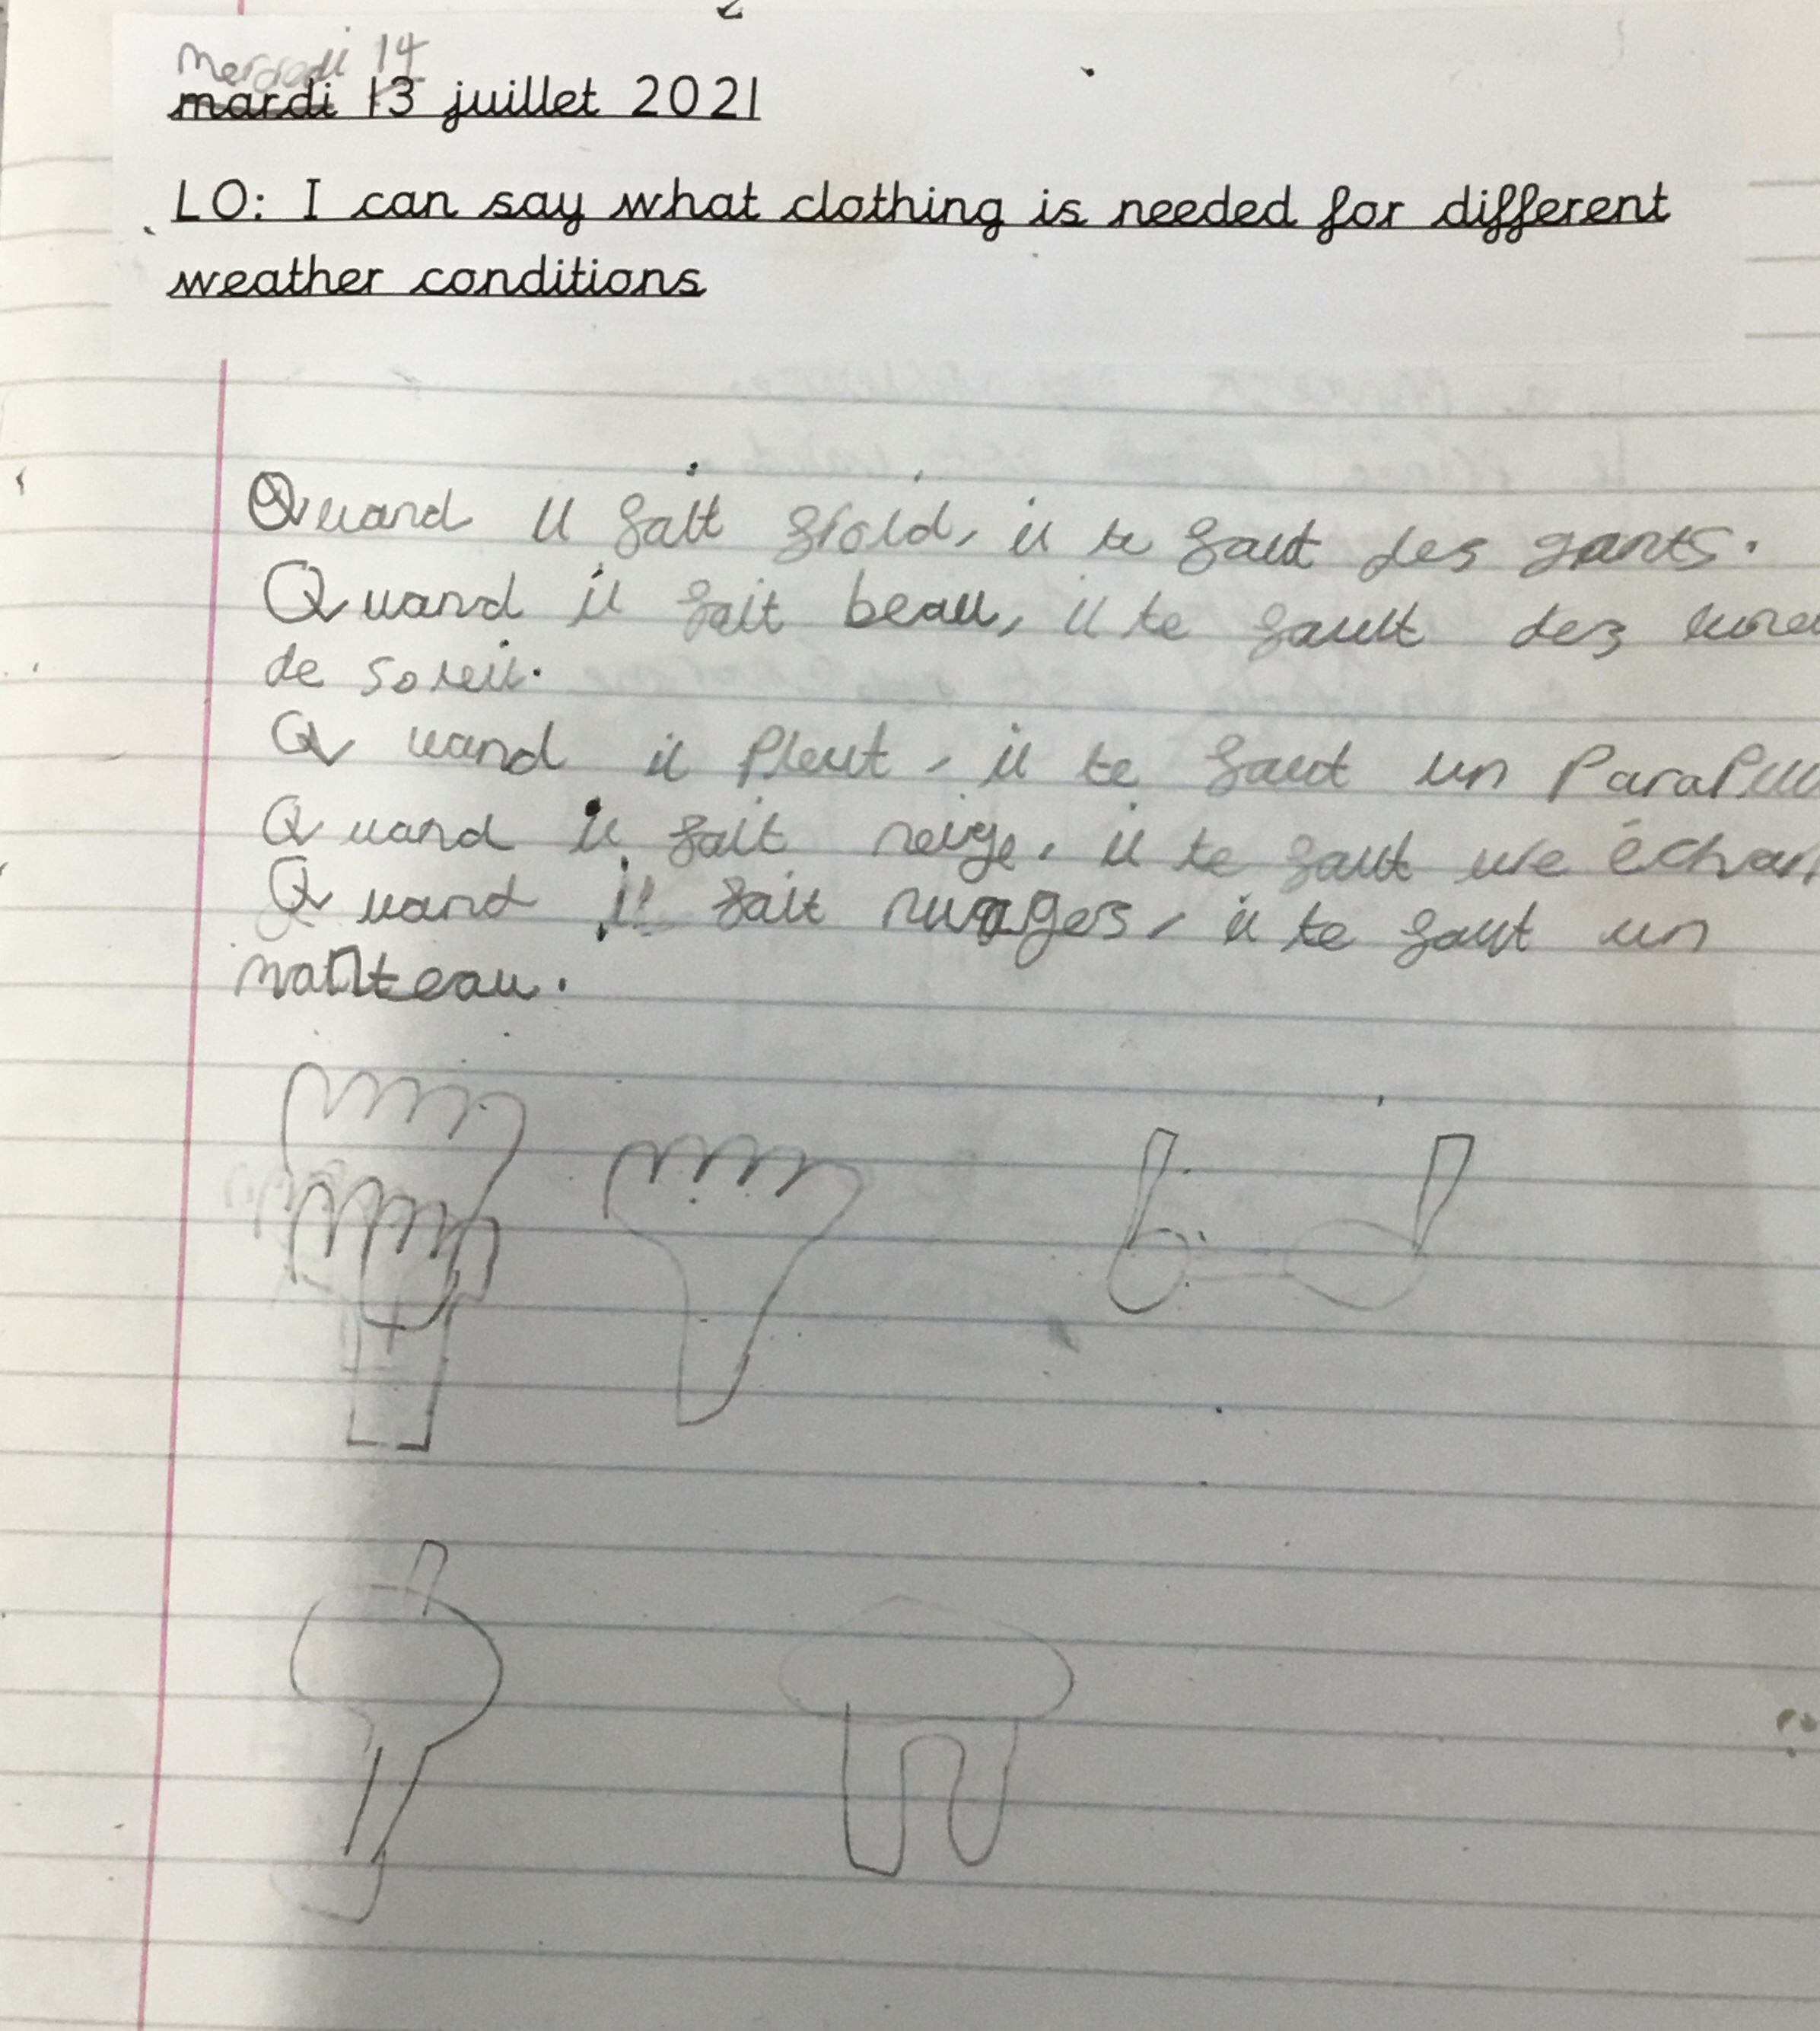 mercredi 14
mardi 13 juillet 2021
LO: I can say what clothing is needed for different
weather conditions
Quand il fait froid, il te faut des gants.
Quand il fait beau, il te fault des lune
de soleil.
Quand il pleut, il te faut un Paraplu
Quand il fait neige, il te faut une échar
Quand il fait nuages, il te faut un
manteau.